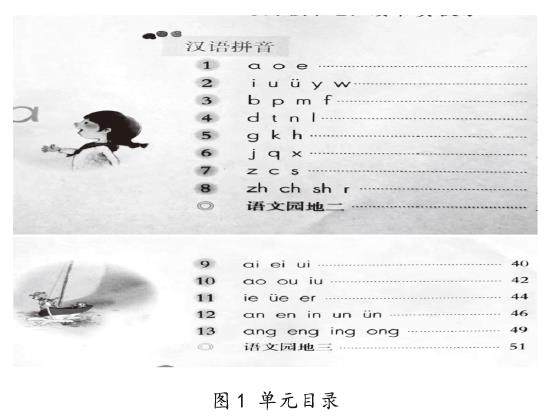 汉语拼音
1 a o e
2 i u ü y w
3 b p m f
4 d t n l
5 g k h
6 j q x
7 z c s
8 zh ch sh r
◎ 语文园地二
9 ai ei ui 40
10 ao ou iu 42
11 ie üe er 44
12 an en in un ün 46
13 ang eng ing ong 49
◎ 语文园地三 51
图1 单元目录